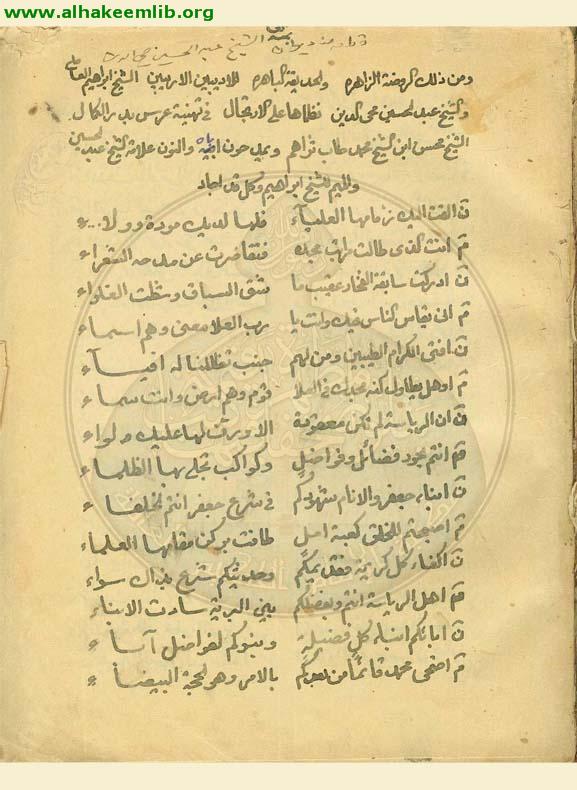 www.alhakeemlib.org
الشيخ عبد الحسين
ومن ذلك الروضة الزاهره والحديقة الباهره للاديبين الاريبين الشيخ ابراهيم العاملي
والشيخ عبد الحسين محي الدين نظماها على الارتجال في تهنية عرس بدر الكمال
الشيخ محسن ابن الشيخ محمد طاب ثراهم والنون علامة الشيخ عبد الحسين
والميم للشيخ ابراهيم وكل قد اجاد
ن القت اليك زمامها العلياء فلها لديك مودة وولاء
م انت الذي طالت مراتب مجده فتقاصرت عن مدحه الشعراء
ن ادركت سابقة الفخار عقيب ما شق السباق وشطت الغلواء
م انى يقاس الناس فيك وانت يا رب العلا معنى وهم اسماء
ن افتى الكرام الطيبين ومن لهم جنب تظللنا له افياء
م اوهل يطاول كنه مجدك في العلا قوم وهم ارض وانت سماء
ن ان الرياسة لم تكن معقودة الا ورفت لها عليك لواء
م انتم بجود فضائل وفواضل وكواكب تجلى بها الظلماء
ن ابناء جعفر والانام شهودكم في شرع جعفر انتم الخلفاء
م اصبحتم للخلق كعبة امل طافت بركن مقامها العلماء
ن اكفاء كل كريمة وحديثكم شرع بذاك سواء
م اهل الرياسة انتم وبفضلكم بين البرية سادت الابناء
ن اباؤكم ابناء كل فضيلة وبنوكم لفواضل آباء
م اضحى محمد قائما من بعدكم بالامر وهو الحجة البيضاء